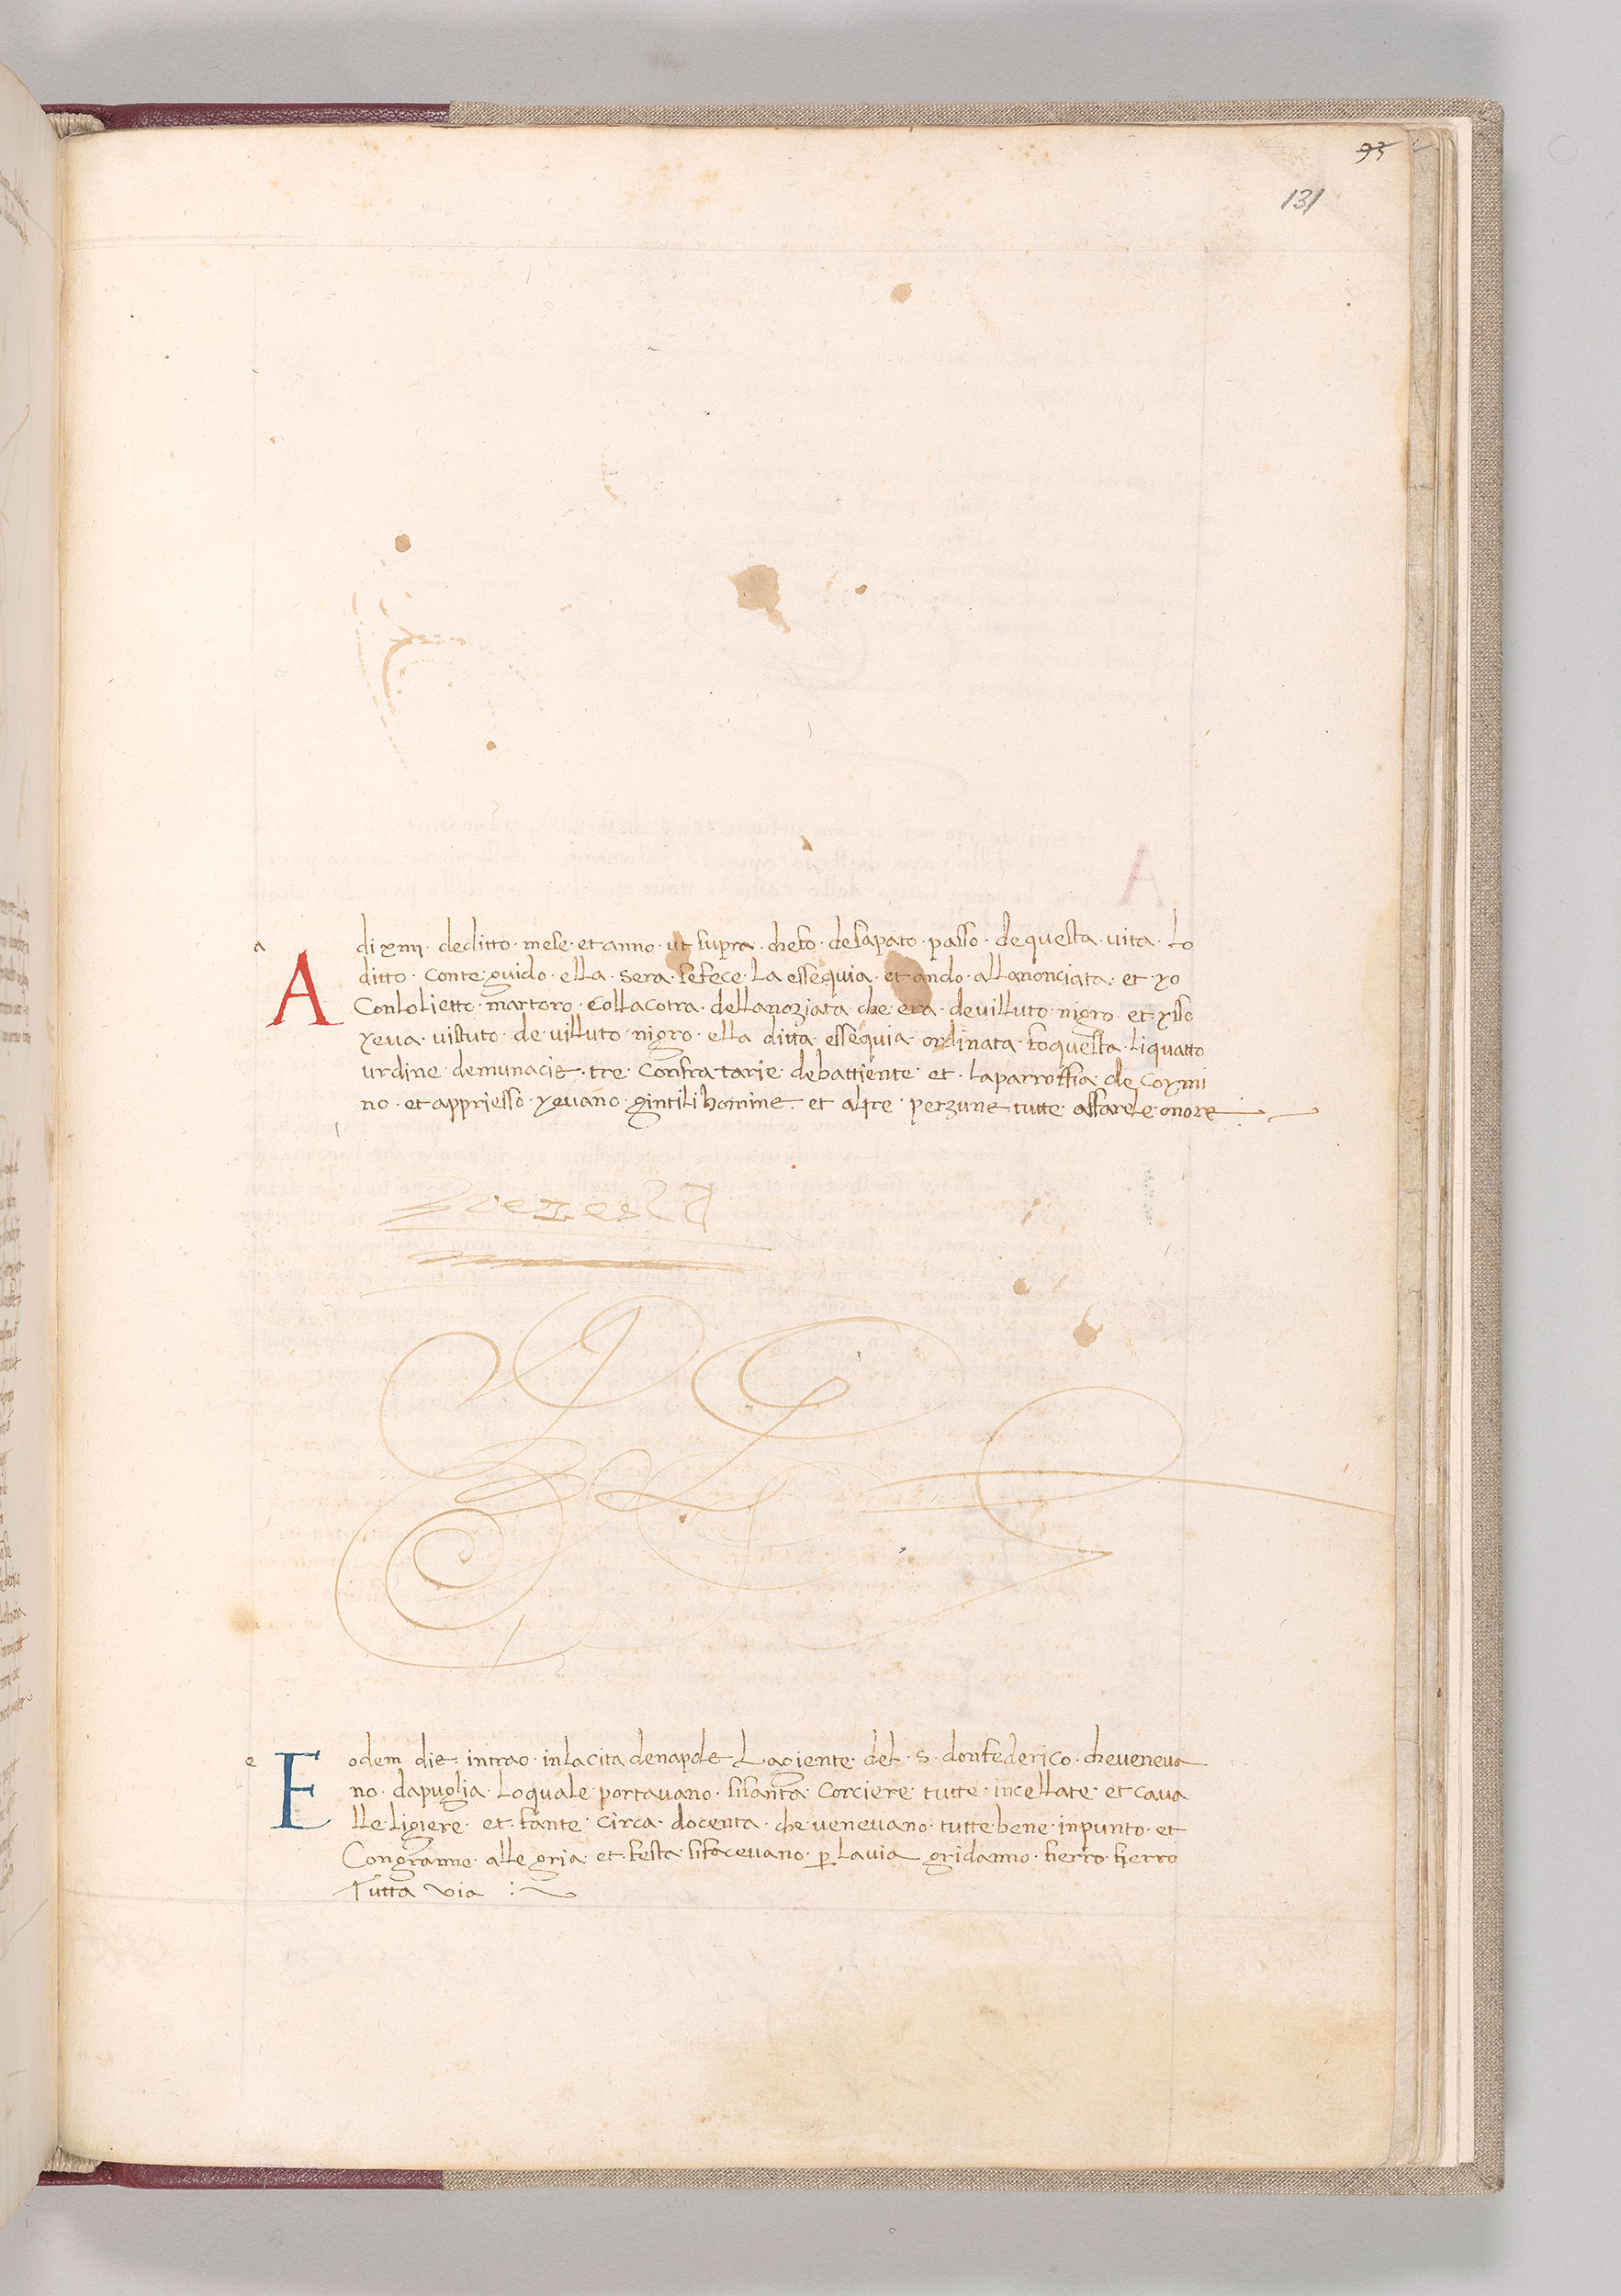 93
131
a
A di xıııı · de ditto · mese · et anno · ut supra · che fo · de sapato · passo · de questa · vita · Lo
ditto · Conte · guido · ella · sera · se fece · La essequia · et ando · alla nonciata · et yo
Con lo lietto · martoro · Colla cotra · della noziata · che · era · de villuto · nigro · et · ysso
yeva · vistuto · de villuto · nigro · ella · ditta · essequia · ordinata · fo questa · li quatto
urdine · de munacie · tre · Confratarie · de battiente · et · la parroffia · de Coymi
no · et appriesso · yevano · gintili homine · et altre · perzune tutte · affarele onore
e
E odem die · intrao · in la cita de napole La giente · del · S · don federico · che veneva
no · da puglia · Lo quale · portavano · sisanta · Corciere · tutte · incellate · et cava
lle · ligiere · et · fante · Circa · docenta · che venevano · tutte bene · in punto · et
Con granne · alle gria · et · festa · si facevano · p la via gridanno · fierro · fierro
Tutta via :